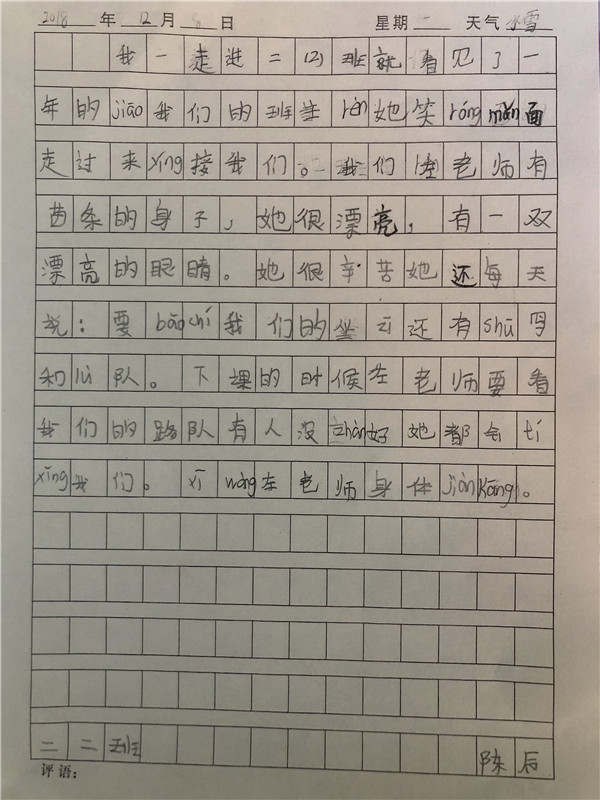 2018 年 12 月 8 日 星期 二 天气 小雪
我一走进二(2)班就看见了一
年的jiāo我们的班主rèn她笑róngmǎn面
走过来xíng接我们。我们陆老师有
苗条的身子,她很漂亮,有一双
漂亮的眼睛。她很辛苦她还每天
说:要bāochí我们的坐zī还有shū写
和lù队。下课的时候老师要看
我们的路队有人没zhàn好她都会tí
xǐng我们。xīwàng老师身体jiànkāng。
二二班 陈后
评语: